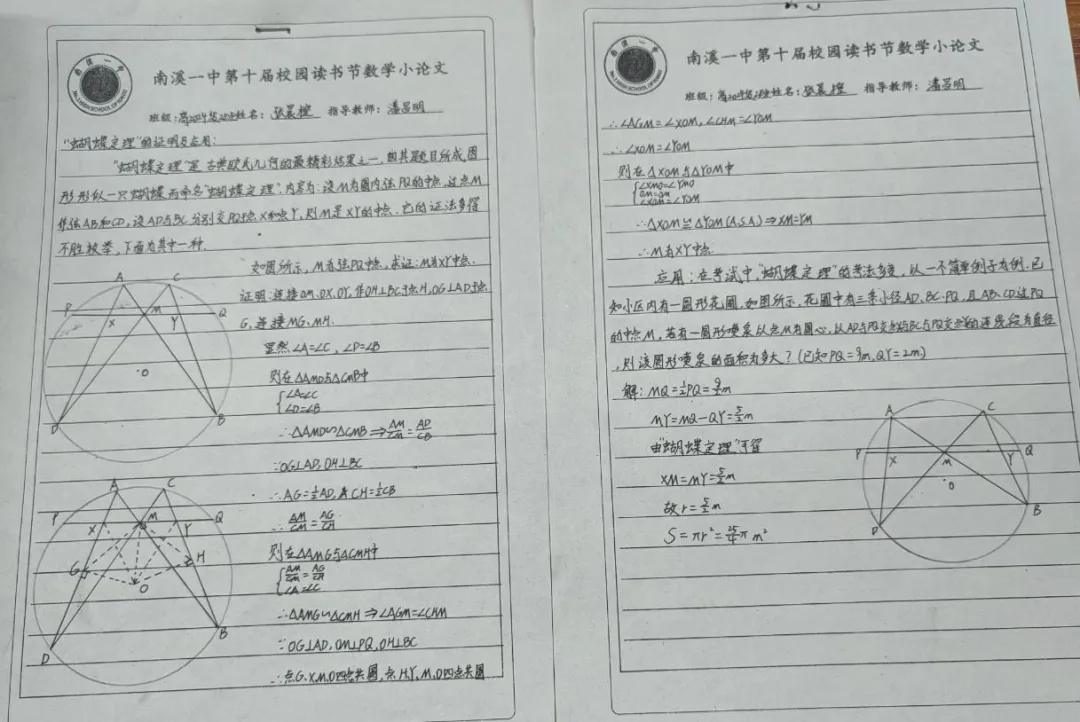 南溪一中第十届校园读书节数学小论文
班级: 姓名: 张晨橙 指导教师: 潘吕明
"蝴蝶定理"的证明及应用:
"蝴蝶定理"是古典欧氏几何的最精彩结果之一,因其题目所成图
形形似一只蝴蝶而命名"蝴蝶定理",内容为:设M为圆内弦PQ的中点,过点M
作弦AB和CD,设AD与BC分别交PQ于点X和点Y,则M是XY的中点,它的证法多得
不胜枚举,下面为其中一种.
如图所示,M为弦PQ中点,求证:M为XY中点.
证明:连接OM、OX、OY,作OH⊥BC于点H,OG⊥AD于点
G,连接MG、MH.
显然∠A=∠C,∠D=∠B
则在△AMD与△CMB中
∠A=∠C
∠D=∠B
∴△AMD∽△CMB⇒AM/CM=AD/CB
∵OG⊥AD,OH⊥BC
∴AG=½AD, CH=½CB
∴AM/CM=AG/CH
则在△AMG与△CMH中
AM/CM=AG/CH
∠A=∠C
∴△AMG∽△CMH⇒∠AGM=∠CHM
∵OG⊥AD,OM⊥PQ,OH⊥BC
∴点G、X、M、O四点共圆,点H、Y、M、O四点共圆
A C
P X M Y Q
O
D B
A C
P X M Y Q
G H
O
D B
南溪一中第十届校园读书节数学小论文
班级: 姓名: 张晨橙 指导教师: 潘吕明
∴∠AGM=∠XOM,∠CHM=∠YOM
∴∠XOM=∠YOM
则在△XOM与△YOM中
∠XMO=∠YMO
OM=OM
∠XOM=∠YOM
∴△XOM≌△YOM(A.S.A)⇒XM=YM
∴M为XY中点
应用:在考试中,"蝴蝶定理"的考法多变,以一个简单例子为例.已
知小区内有一圆形花圃,如图所示,花圃中有三条小径AD、BC、PQ,且AB、CD过PQ
的中点M,若有一圆形喷泉以点M为圆心,以AD与PQ交点X与BC与PQ交点Y的连线段为直径
,则该圆形喷泉的面积为多大?(已知PQ=9m,QY=2m)
解:MQ=½PQ=9/2m
MY=MQ-QY=5/2m
由"蝴蝶定理"可得
XM=MY=5/2m
故r=5/2m
S=πr²=25/4π m²
A C
P X M Y Q
O
D B